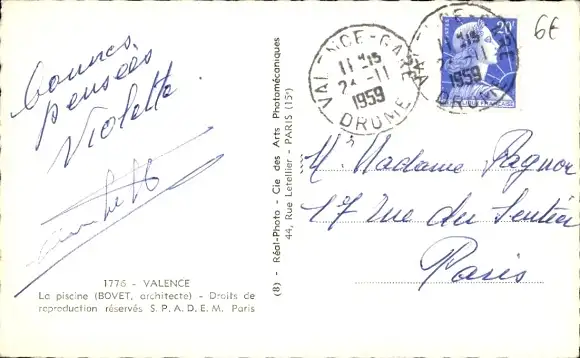 bonnes
pensées
Violette
1776 - VALENCE
La piscine (BOVET, architecte) - Droits de
reproduction réservés S. P. A. D. E. M. Paris
(8) - Réal-Photo - Cie des Arts Photomécaniques
44, Rue Letellier - PARIS (15e)
VALENCE-GARE
11 H15
2 -11
1959
DROME
VALENCE-GARE
11 H15
2 -11
1959
DROME
20F
FRANÇAISE
6€
M. Madame Pagnon
17 rue du Sentier
Paris